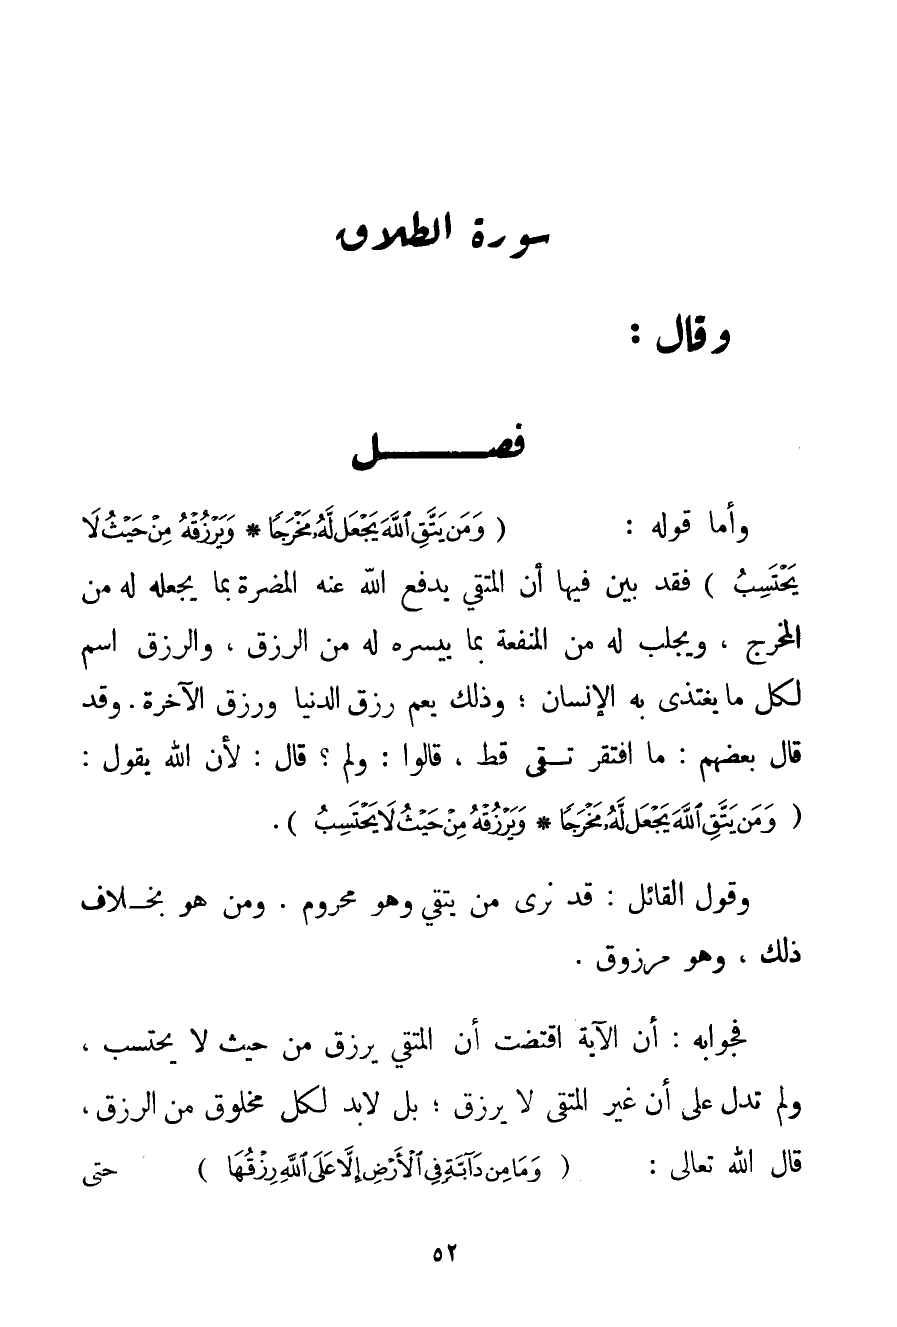 سورة الطلاق
وقال :
فصــــــــل
وأما قوله : ( وَمَن يَتَّقِ ٱللَّهَ يَجْعَل لَّهُۥ مَخْرَجًا * وَيَرْزُقْهُ مِنْ حَيْثُ لَا
يَحْتَسِبُ ) فقد بين فيها أن المتقي يدفع الله عنه المضرة بما يجعله له من
المخرج ، ويجلب له من المنفعة بما ييسره له من الرزق ، والرزق اسم
لكل ما يغتذى به الإنسان ؛ وذلك يعم رزق الدنيا ورزق الآخرة . وقد
قال بعضهم : ما افتقر تــقى قط ، قالوا : ولم ؟ قال : لأن الله يقول :
( وَمَن يَتَّقِ ٱللَّهَ يَجْعَل لَّهُۥ مَخْرَجًا * وَيَرْزُقْهُ مِنْ حَيْثُ لَا يَحْتَسِبُ ) .
وقول القائل : قد نرى من يتقي وهو محروم . ومن هو بخــلاف
ذلك ، وهو مرزوق .
فجوابه : أن الآية اقتضت أن المتقي يرزق من حيث لا يحتسب ،
ولم تدل على أن غير المتقى لا يرزق ؛ بل لابد لكل مخلوق من الرزق ،
قال الله تعالى : ( وَمَا مِن دَآبَّةٍ فِي ٱلْأَرْضِ إِلَّا عَلَى ٱللَّهِ رِزْقُهَا ) حتى
٥٢